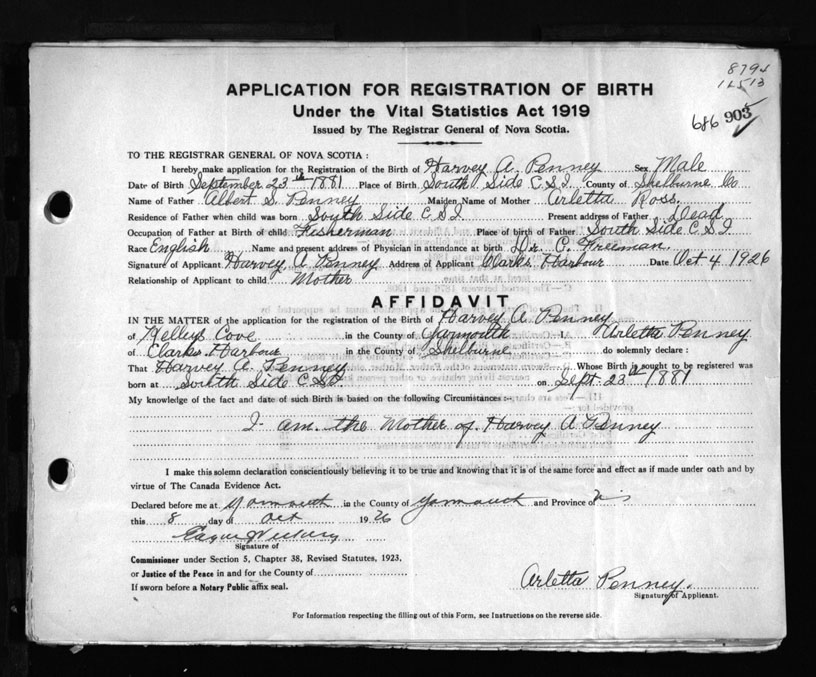 8794
12513
686 903
APPLICATION FOR REGISTRATION OF BIRTH
Under the Vital Statistics Act 1919
Issued by The Registrar General of Nova Scotia.
TO THE REGISTRAR GENERAL OF NOVA SCOTIA :
I hereby make application for the Registration of the Birth of Harvey A. Penney Sex Male
Date of Birth September 23th 1881 Place of Birth South Side C.S.I. County of Shelburne Co
Name of Father Albert S. Penney Maiden Name of Mother Arletta Ross.
Residence of Father when child was born South Side C.S.I. Present address of Father Dead
Occupation of Father at Birth of child Fisherman Place of birth of Father South Side C.S.I.
Race English Name and present address of Physician in attendance at birth Dr. C. Freeman.
Signature of Applicant Harvey A. Penney Address of Applicant Clarks Harbour Date Oct 4 1926
Relationship of Applicant to child Mother
AFFIDAVIT
IN THE MATTER of the application for the registration of the Birth of Harvey A. Penney
of Kelleys Cove in the County of Yarmouth I, Arletta Penney
of Clarks Harbour in the County of Shelburne do solemnly declare :
That Harvey A. Penney Whose Birth is sought to be registered was
born at South Side C.S.I. on Sept. 23th 1881
My knowledge of the fact and date of such Birth is based on the following Circumstances :-
I am the Mother of Harvey A Penney
I make this solemn declaration conscientiously believing it to be true and knowing that it is of the same force and effect as if made under oath and by
virtue of The Canada Evidence Act.
Declared before me at Yarmouth in the County of Yarmouth and Province of N S
this 8 day of Oct 1926
Signature of
Commissioner under Section 5, Chapter 38, Revised Statutes, 1923,
or Justice of the Peace in and for the County of
If sworn before a Notary Public affix seal.
Arletta Penney.
Signature of Applicant.
For Information respecting the filling out of this Form, see Instructions on the reverse side.